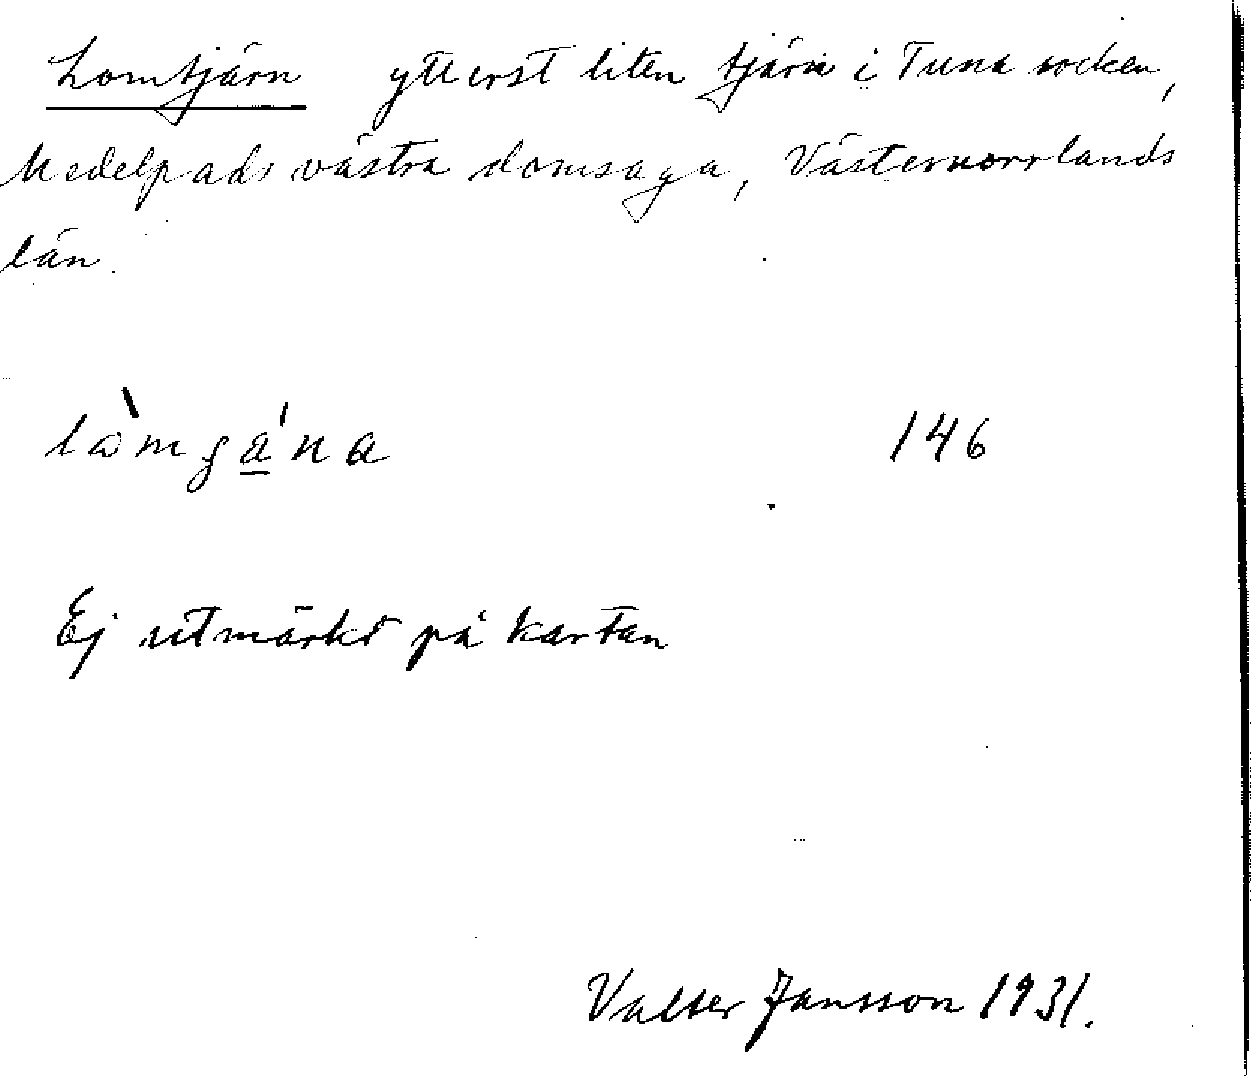 Lomtjärn ytterst liten tjärn i Tuna socken,
Medelpads västra domsaga, Västernorrlands
län.
146
Ej utmärkt på kartan
Valter Jansson 1931.